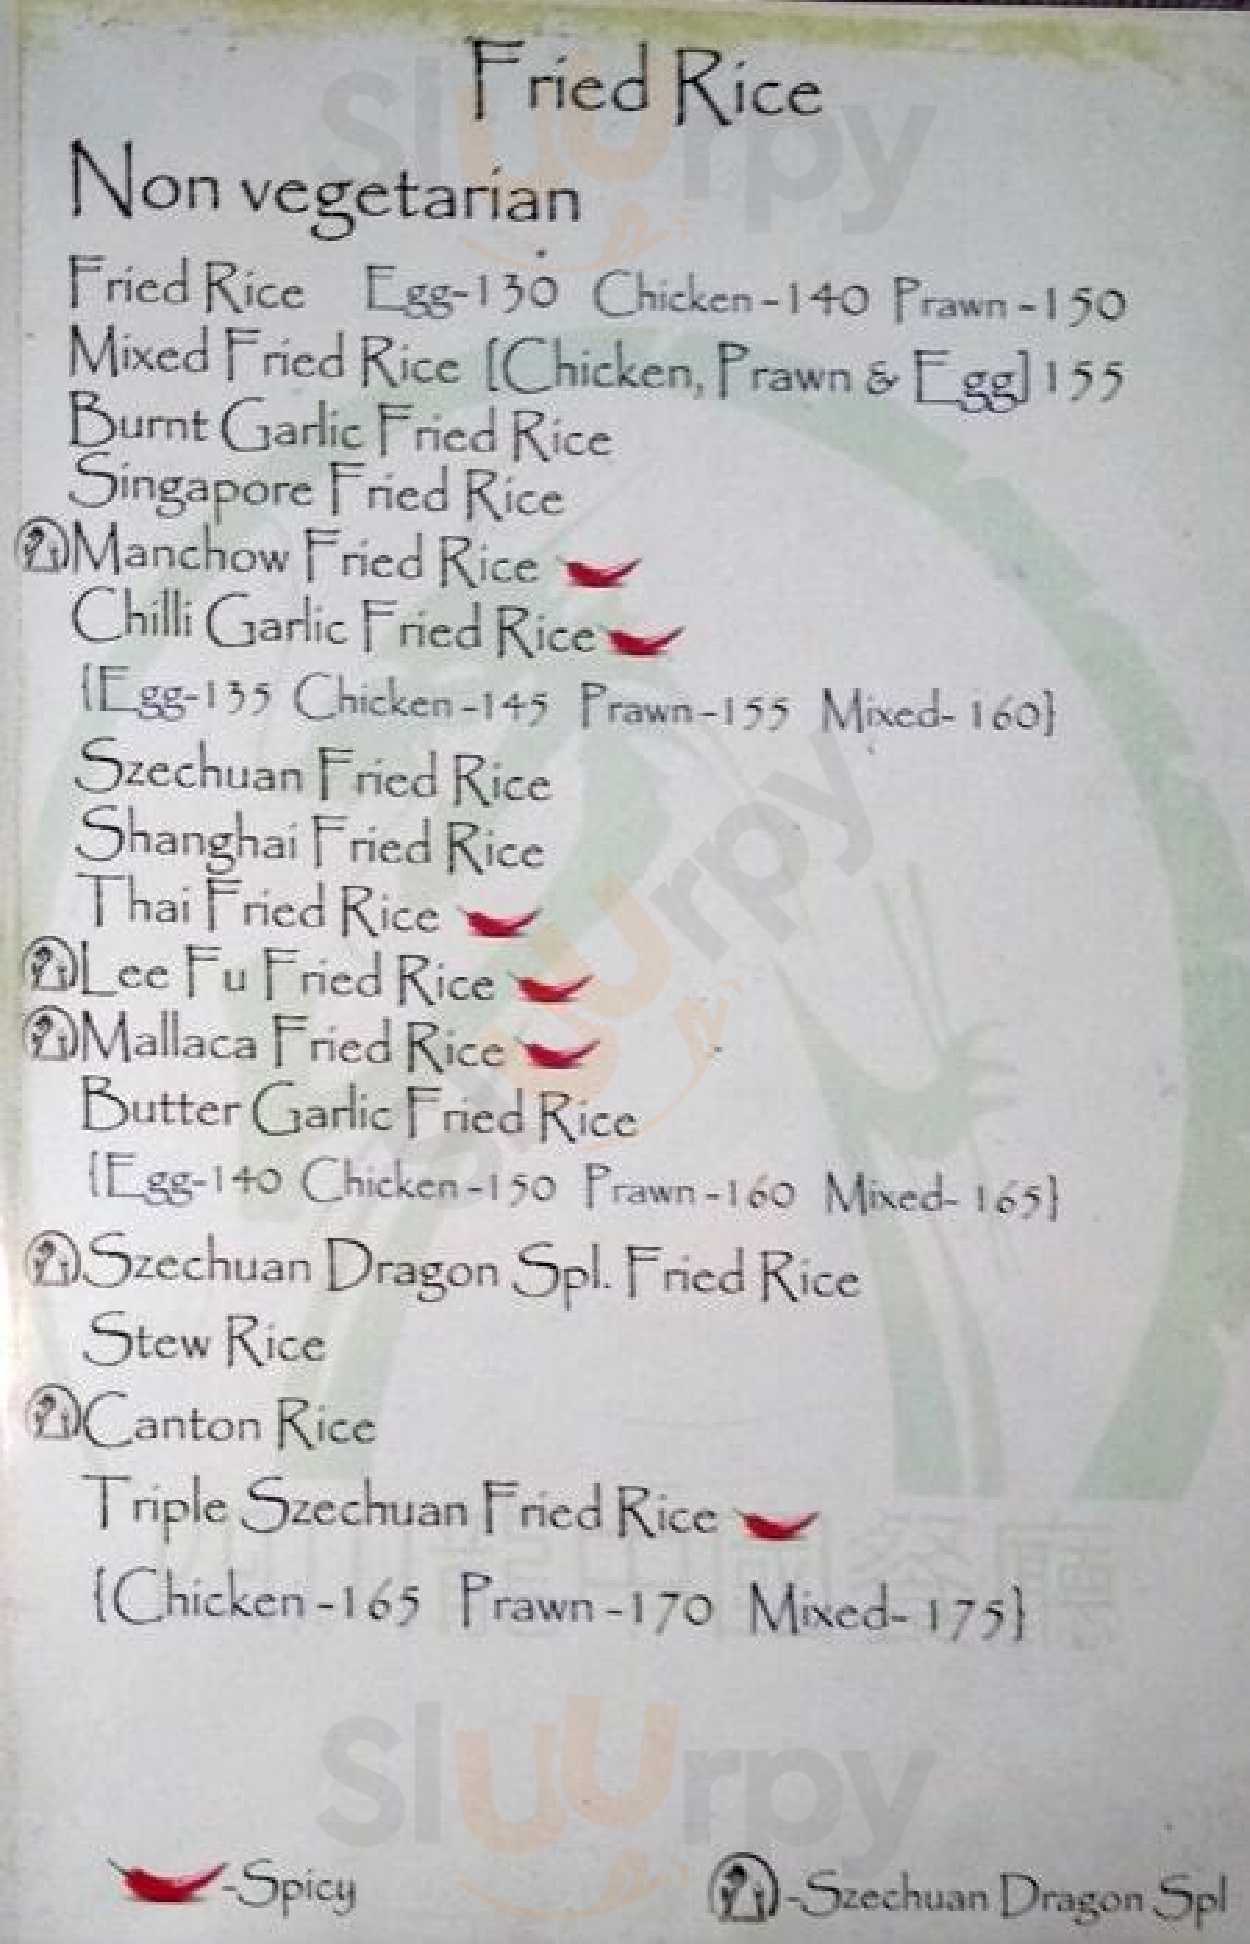 Fried Rice
Non vegetarian
Fried Rice Egg-130 Chicken-140 Prawn-150
Mixed Fried Rice [Chicken, Prawn & Egg] 155
Burnt Garlic Fried Rice
Singapore Fried Rice
Manchow Fried Rice
Chilli Garlic Fried Rice
{Egg-135 Chicken-145 Prawn-155 Mixed- 160}
Szechuan Fried Rice
Shanghai Fried Rice
Thai Fried Rice
Lee Fu Fried Rice
Mallaca Fried Rice
Butter Garlic Fried Rice
{Egg-140 Chicken-150 Prawn-160 Mixed- 165}
Szechuan Dragon Spl. Fried Rice
Stew Rice
Canton Rice
Triple Szechuan Fried Rice
{Chicken-165 Prawn-170 Mixed- 175}
-Spicy
-Szechuan Dragon Spl
Sluurpy
Sluurpy
Sluurpy